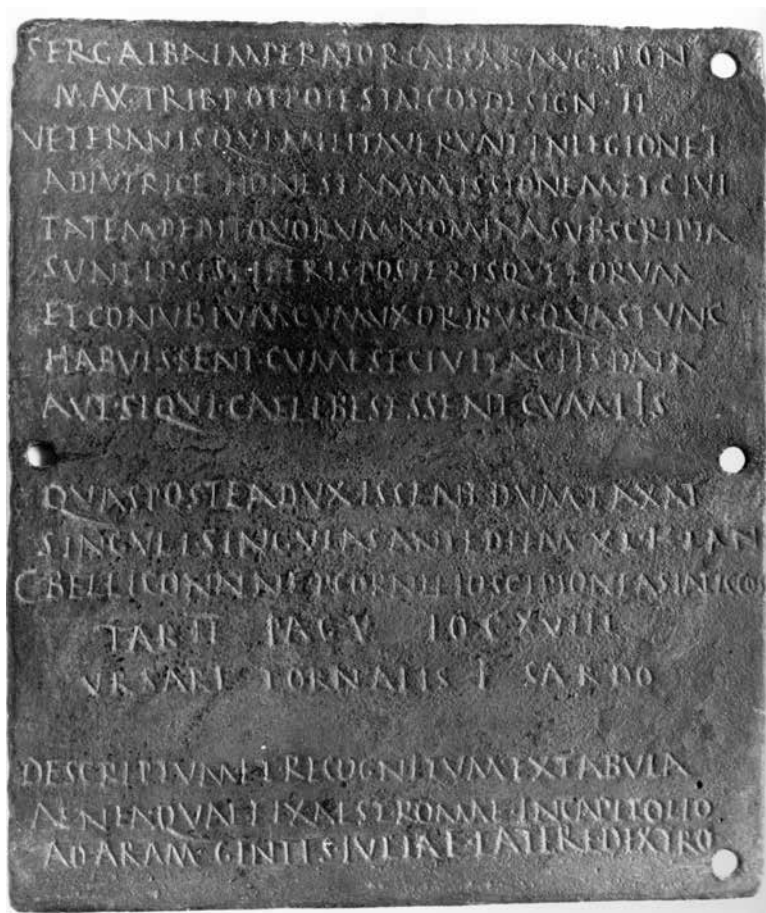 SER GALBA IMPERATOR CAESAR AVG PON
MAX TRIB POT POTESTAT COS DESIGN II
VETERANIS QVI MILITAVERVNT IN LEGIONE I
ADIVTRICE HONESTAM MISSIONEM ET CIVI
TATEM DEDIT QVORVM NOMINA SVBSCRIPTA
SVNT IPSIS LIBERIS POSTERISQVE EORVM
ET CONVBIVM CVM VXORIBVS QVAS TVNC
HABVISSENT CVM EST CIVITAS IIS DATA
AVT SI QVI CAELIBES ESSENT CVM IIS
QVAS POSTEA DVXISSENT DVMTAXAT
SINGVLI SINGVLAS ANTE DIEM XI K IAN
C BELLICO P CORNELIO SCIPIONE ASIATICO COS
TAB II PAG V LOC XVIII
VRSARI TORNALIS F SARDO
DESCRIPTVM ET RECOGNITVM EX TABVLA
AENEA QVAE FIXA EST ROMAE IN CAPITOLIO
AD ARAM GENTIS IVLIAE LATERE DEXTRO